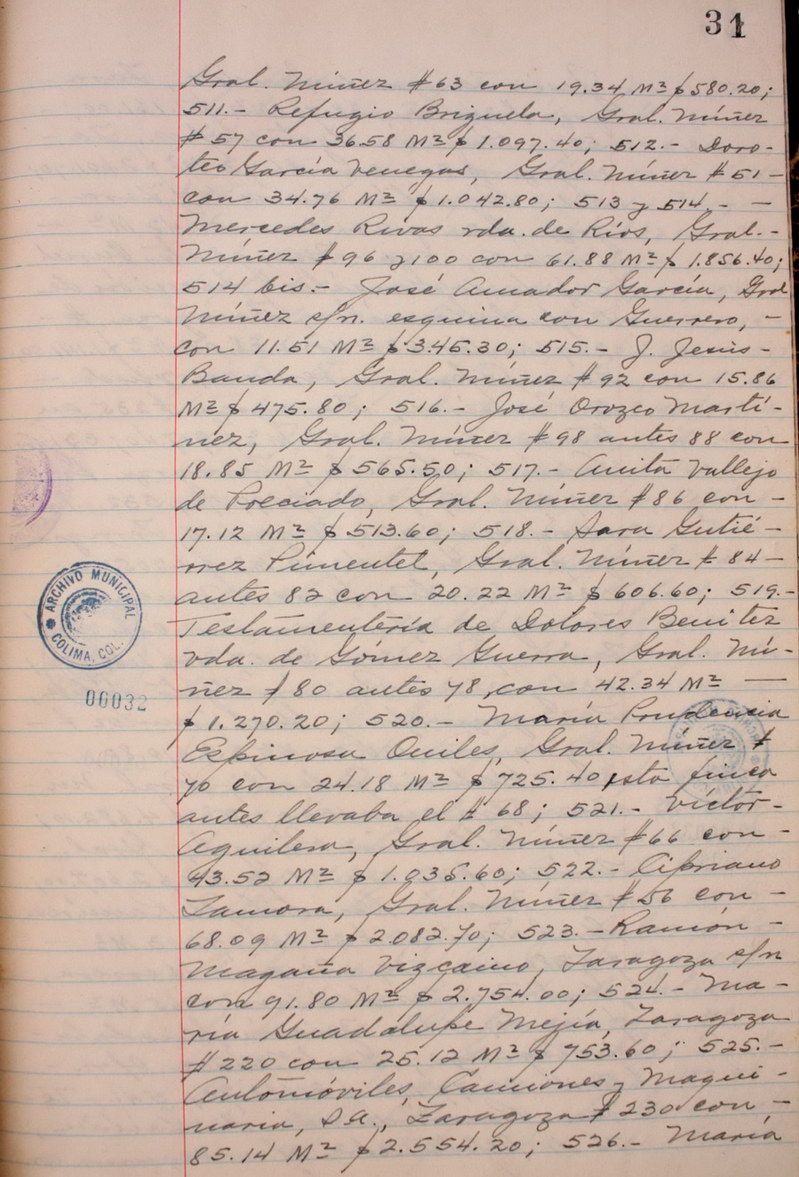 31
Gral. Núñez #63 con 19.34 M² $580.20;
511.- Refugio Brizuela, Gral. Núñez
#57 con 36.58 M² $1.097.40; 512.- Doro-
teo García Venegas, Gral. Núñez #51-
con 34.76 M² $1.042.80; 513 y 514.- -
Mercedes Rivas vda. de Ríos, Gral.-
Núñez #96 y 100 con 61.88 M² $1.856.40;
514 bis.- José Amador García, Gral
Núñez s/n. esquina con Guerrero, -
con 11.51 M² $345.30; 515.- J. Jesús-
Banda, Gral. Núñez #92 con 15.86
M² $475.80; 516.- José Orozco Martí-
nez, Gral. Núñez #98 antes 88 con
18.85 M² $565.50; 517.- Anita Vallejo
de Preciado, Gral. Núñez #86 con -
17.12 M² $513.60; 518.- Sara Gutié-
rrez Pimentel, Gral. Núñez #84-
antes 82 con 20.22 M² $606.60; 519.-
Testamentería de Dolores Benitez
vda. de Gómez Guerra, Gral. Nú-
ñez #80 antes 78, con 42.34 M² —
$1.270.20; 520.- María Prudencia
Espinosa Quiles, Gral. Núñez #
70 con 24.18 M² $725.40 esta finca
antes llevaba el #68; 521.- Víctor-
Aguilera, Gral. Núñez #66 con -
43.52 M² $1.035.60; 522.- Cipriano
Zamora, Gral. Núñez #56 con -
68.09 M² $2.082.70; 523.- Ramón-
Magaña Vizcaino, Zaragoza s/n
con 91.80 M² $2.754.00; 524.- Ma-
ría Guadalupe Mejía, Zaragoza
#220 con 25.12 M² $753.60; 525.-
Automóviles, Camiones y Maqui-
naria, S.A., Zaragoza #230 con -
85.14 M² $2.554.20; 526.- María
ARCHIVO MUNICIPAL
COLIMA, COL.
00032